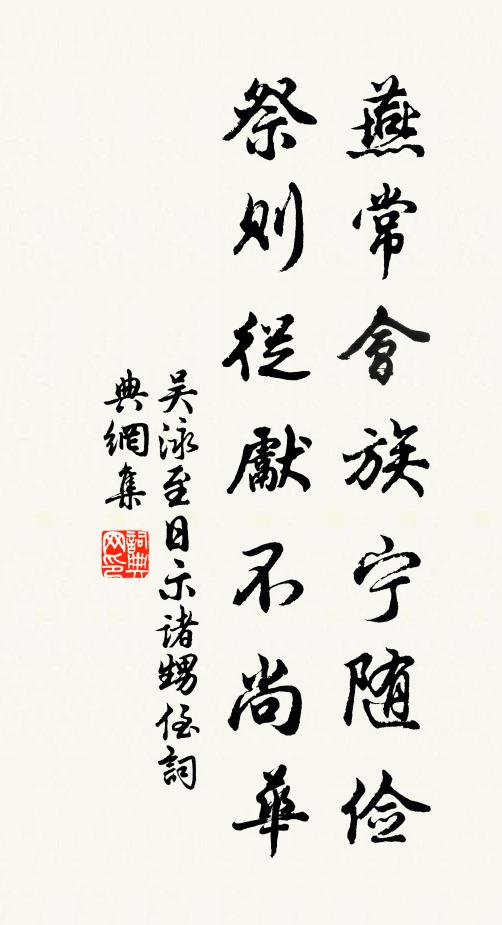 燕常會族宁随俭
祭則從獻不尚華
吴泳至日示诸甥侄詞
典網集
詞典网印